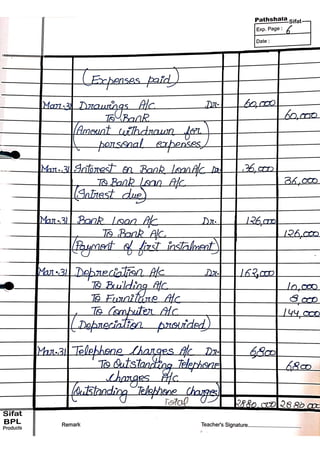 Pathshala Sifat
Exp. Page : 6
Date :
(Expenses paid)
Mar. 31 Drawings A/c Dr. 60,000
To Bank 60,000
(Amount withdrawn for
personal expenses)
Mar. 31 Interest on Bank Loan A/c Dr 36,000
To Bank Loan A/c 36,000
(Intrest due)
Mar. 31 Bank Loan A/c Dr. 126,000
To Bank A/c. 126,000
(Payment of first instalment)
Mar. 31 Depreciation A/c Dr. 163,000
To Building A/c 10,000
To Furniture A/c 9,000
To Computer A/c 144,000
(Depreciation provided)
Mar. 31 Telephone Charges A/c Dr 6800
To Outstanding Telephone 6800
Charges A/c
(Outstanding Telephone Charges)
Total 2880,000 2880,000
Sifat
BPL
Products
Remark
Teacher's Signature